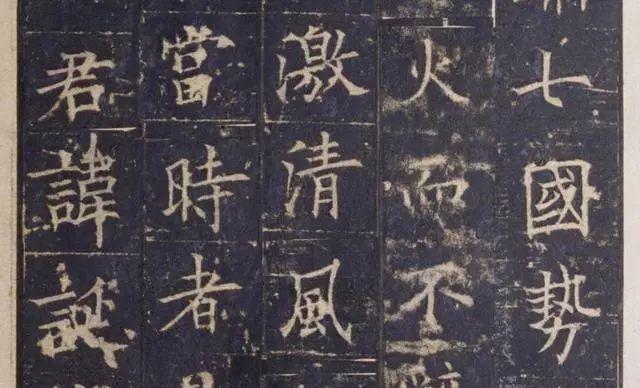 七國勢
火而不
激清風
當時者
君諱誕